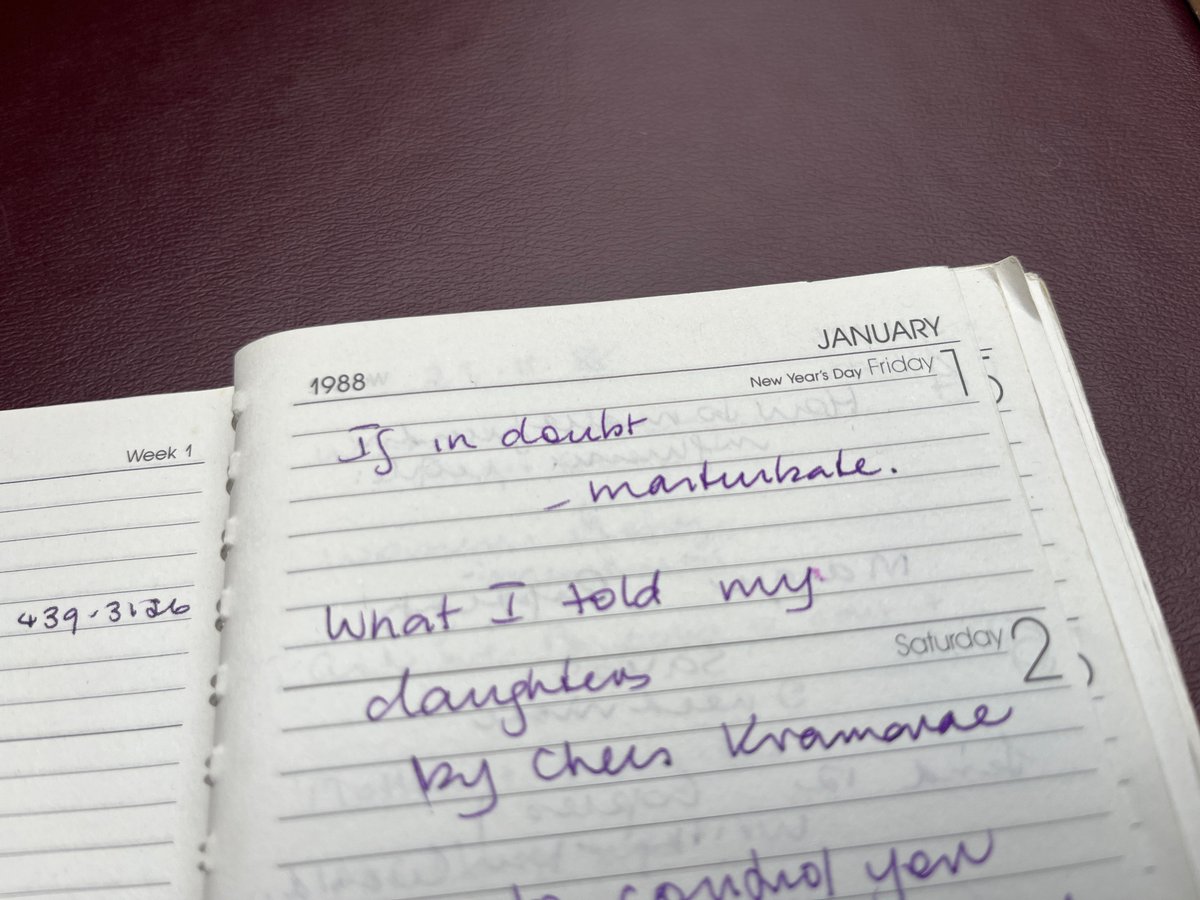 Week 1
439-3126
JANUARY
1988
New Year's Day Friday 1
If in doubt
- masturbate.
What I told my
Saturday 2
daughters
by Cheris Kramarae
control your